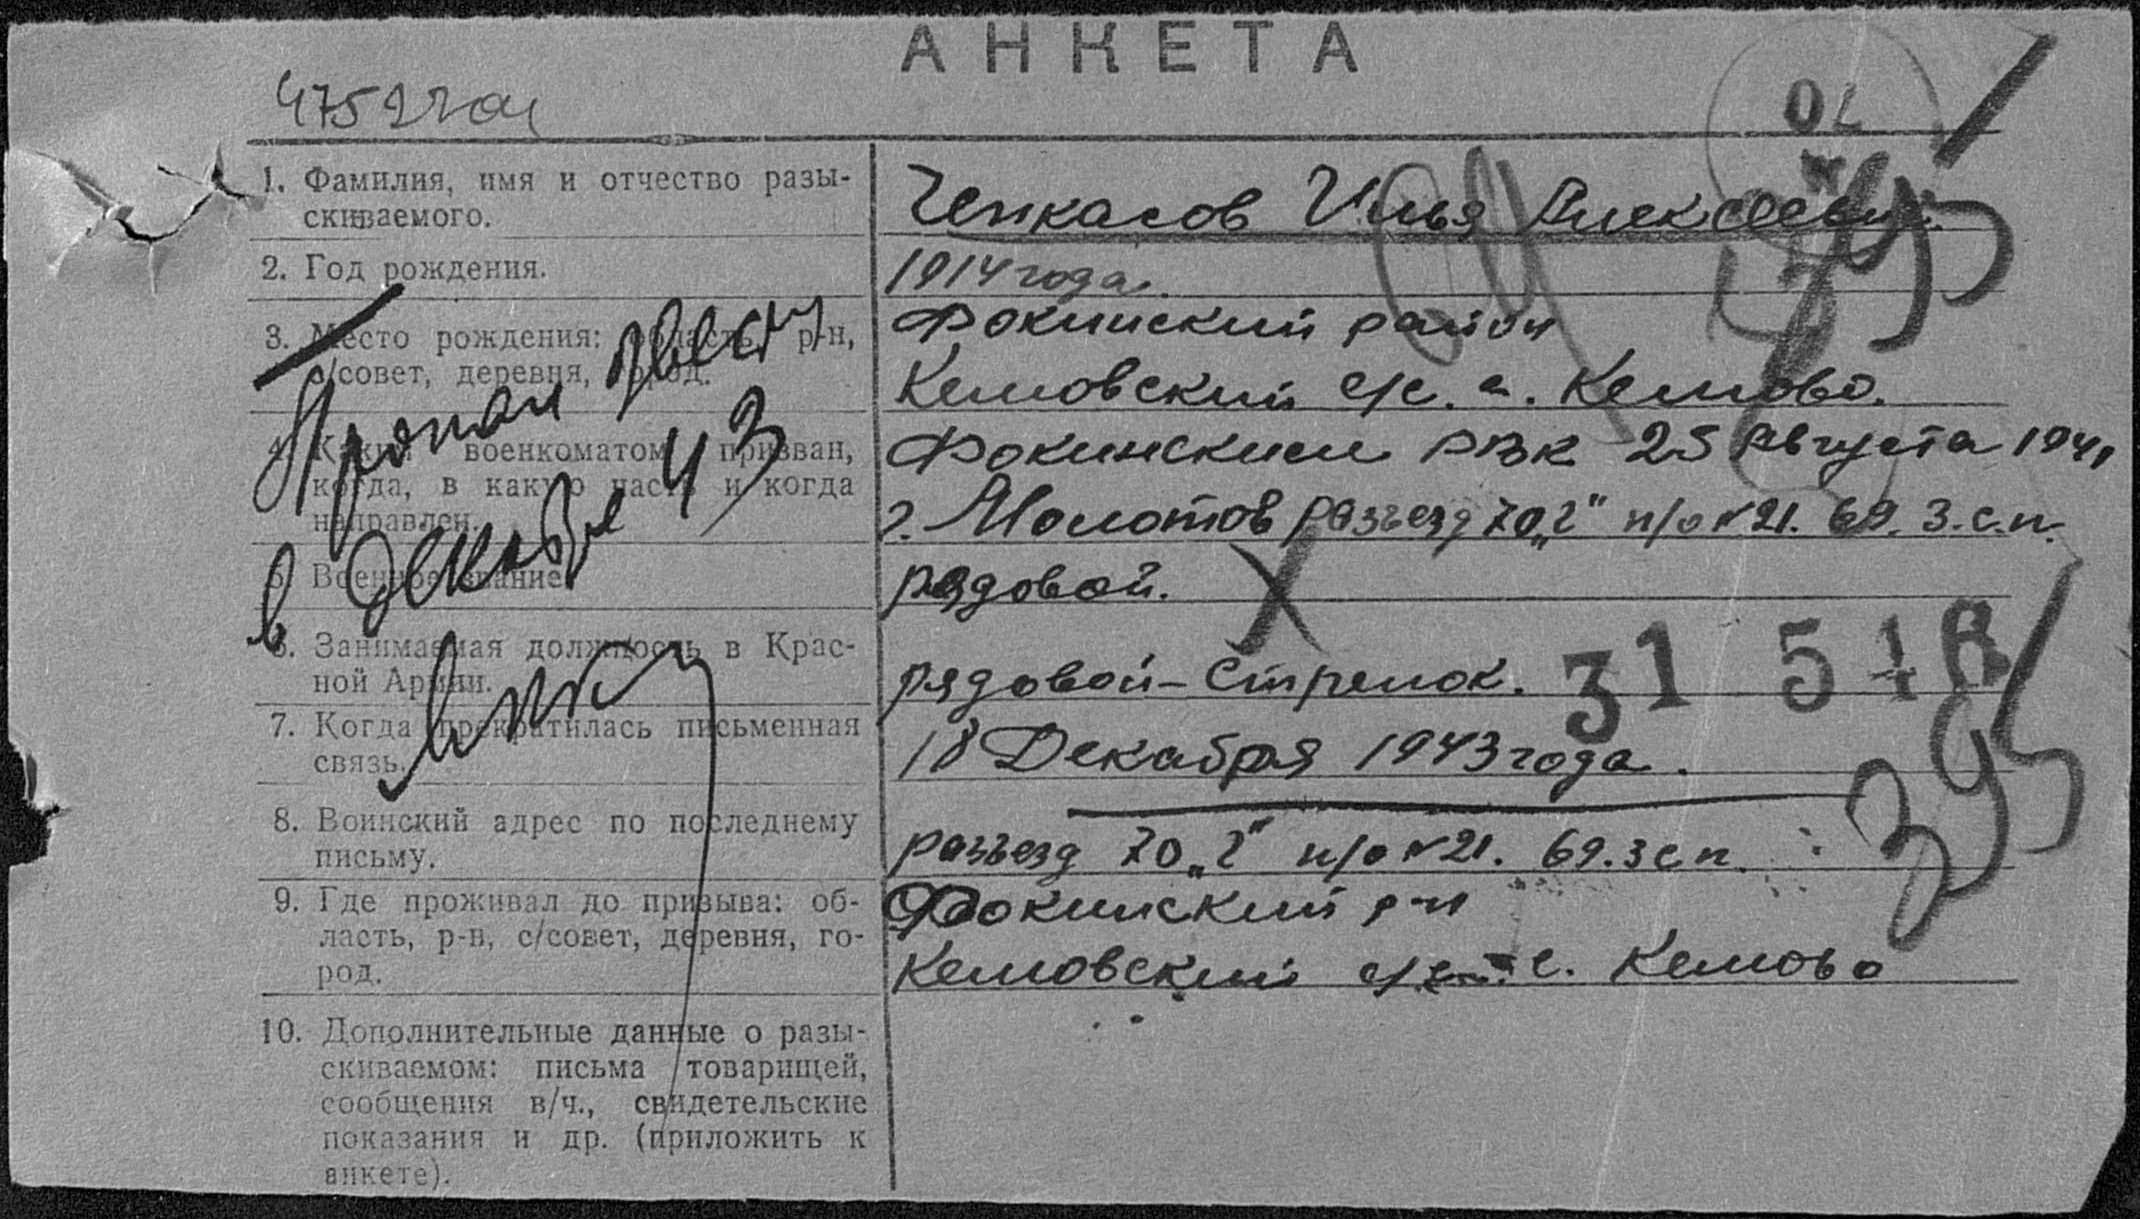 АНКЕТА
1. Фамилия, имя и отчество разы-
скиваемого.
Чепкасов Илья Алексеевич.
2. Год рождения.
1914 года.
3. Место рождения: область, р-н,
с/совет, деревня, город.
Фокинский район
Кемовский с/с. с. Кемово.
4. Каким военкоматом призван,
когда, в какую часть и когда
направлен.
Фокинским РВК 25 Августа 1941
г. Молотов разъезд 70 „г" п/о №21. 69. З.с.п.
5. Военное звание
рядовой.
6. Занимаемая должность в Крас-
ной Армии.
рядовой-стрелок.
31 516
7. Когда прекратилась письменная
связь.
18 Декабря 1943 года.
8. Воинский адрес по последнему
письму.
разъезд 70 „г" п/о №21. 69. з с п
9. Где проживал до призыва: об-
ласть, р-н, с/совет, деревня, го-
род.
Фокинский р-н
Кемовский с. Кемово
10. Дополнительные данные о разы-
скиваемом: письма товарищей,
сообщения в/ч., свидетельские
показания и др. (приложить к
анкете).
Пропал
в декабре 43